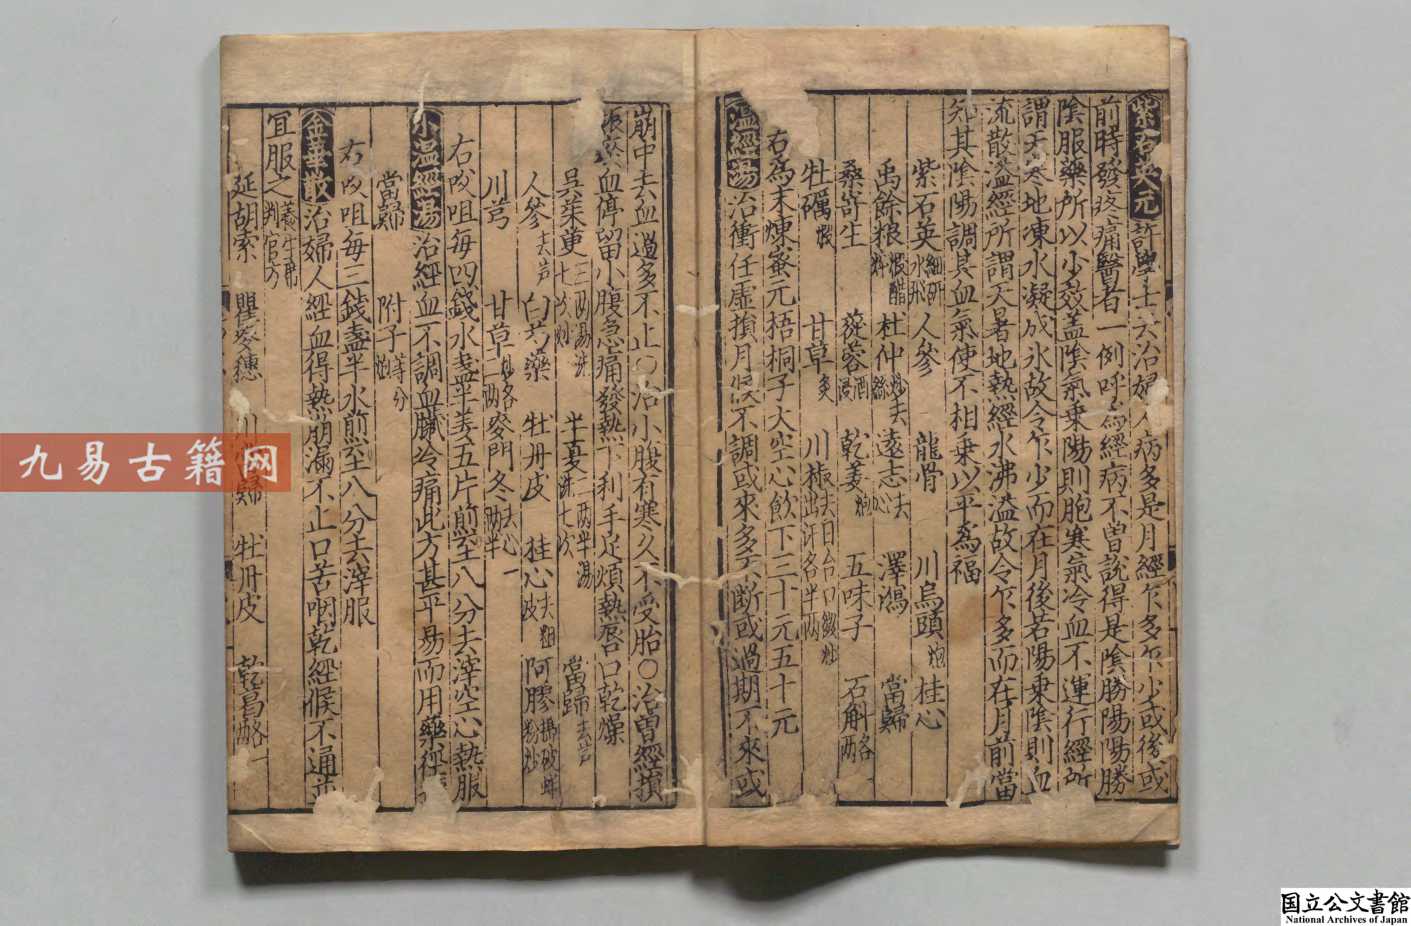 紫石英元許學士云治婦人病多是月經乍多乍少或後或
前時發疼痛醫者一例呼為經病不曾說得是陰勝陽陽勝
陰服藥所以少效蓋陰氣乗陽則胞寒氣冷血不運行經所
謂天寒地凍水凝成氷故令乍少而在月後若陽乗陰則血
流散溢經所謂天暑地熱經水沸溢故令乍多而在月前當
知其陰陽調其血氣使不相乗以平為福
紫石英細研水飛 人參 龍骨 川烏頭炮 桂心
禹餘粮煅醋 杜仲炒去絲 遠志去心 澤瀉 當歸
桑寄生 蓯蓉酒浸 乾姜炮 五味子 石斛各兩
牡礪煅 甘草炙 川椒去目合口微炒出汗各半兩
右為末煉蜜元梧桐子大空心飲下三十元五十元
溫經湯治衝任虛損月候不調或來多不斷或過期不來或
崩中去血過多不止○治小腹有寒久不受胎○治曾經損
血停留小腹急痛發熱下利手足煩熱唇口乾燥
吳茱萸三兩湯洗七次炒 半夏二兩半湯洗七次 當歸去芦
人參去芦 白芍藥 牡丹皮 桂心去粗皮 阿膠搗破蚌粉炒
川芎 甘草炒各一兩 麥門冬去心一兩半
右㕮咀每四錢水盞半姜五片煎至八分去滓空心熱服
小溫經湯治經血不調血臟冷痛此方甚平易而用藥徑
當歸 附子炮等分
右㕮咀每三錢盞半水煎至八分去滓服
金華散治婦人經血得熱崩漏不止口苦咽乾經候不通
宜服之養生必用判官方
延胡索 瞿麥穗 川當歸 牡丹皮 乾葛各一
九易古籍网
国立公文書館
National Archives of Japan